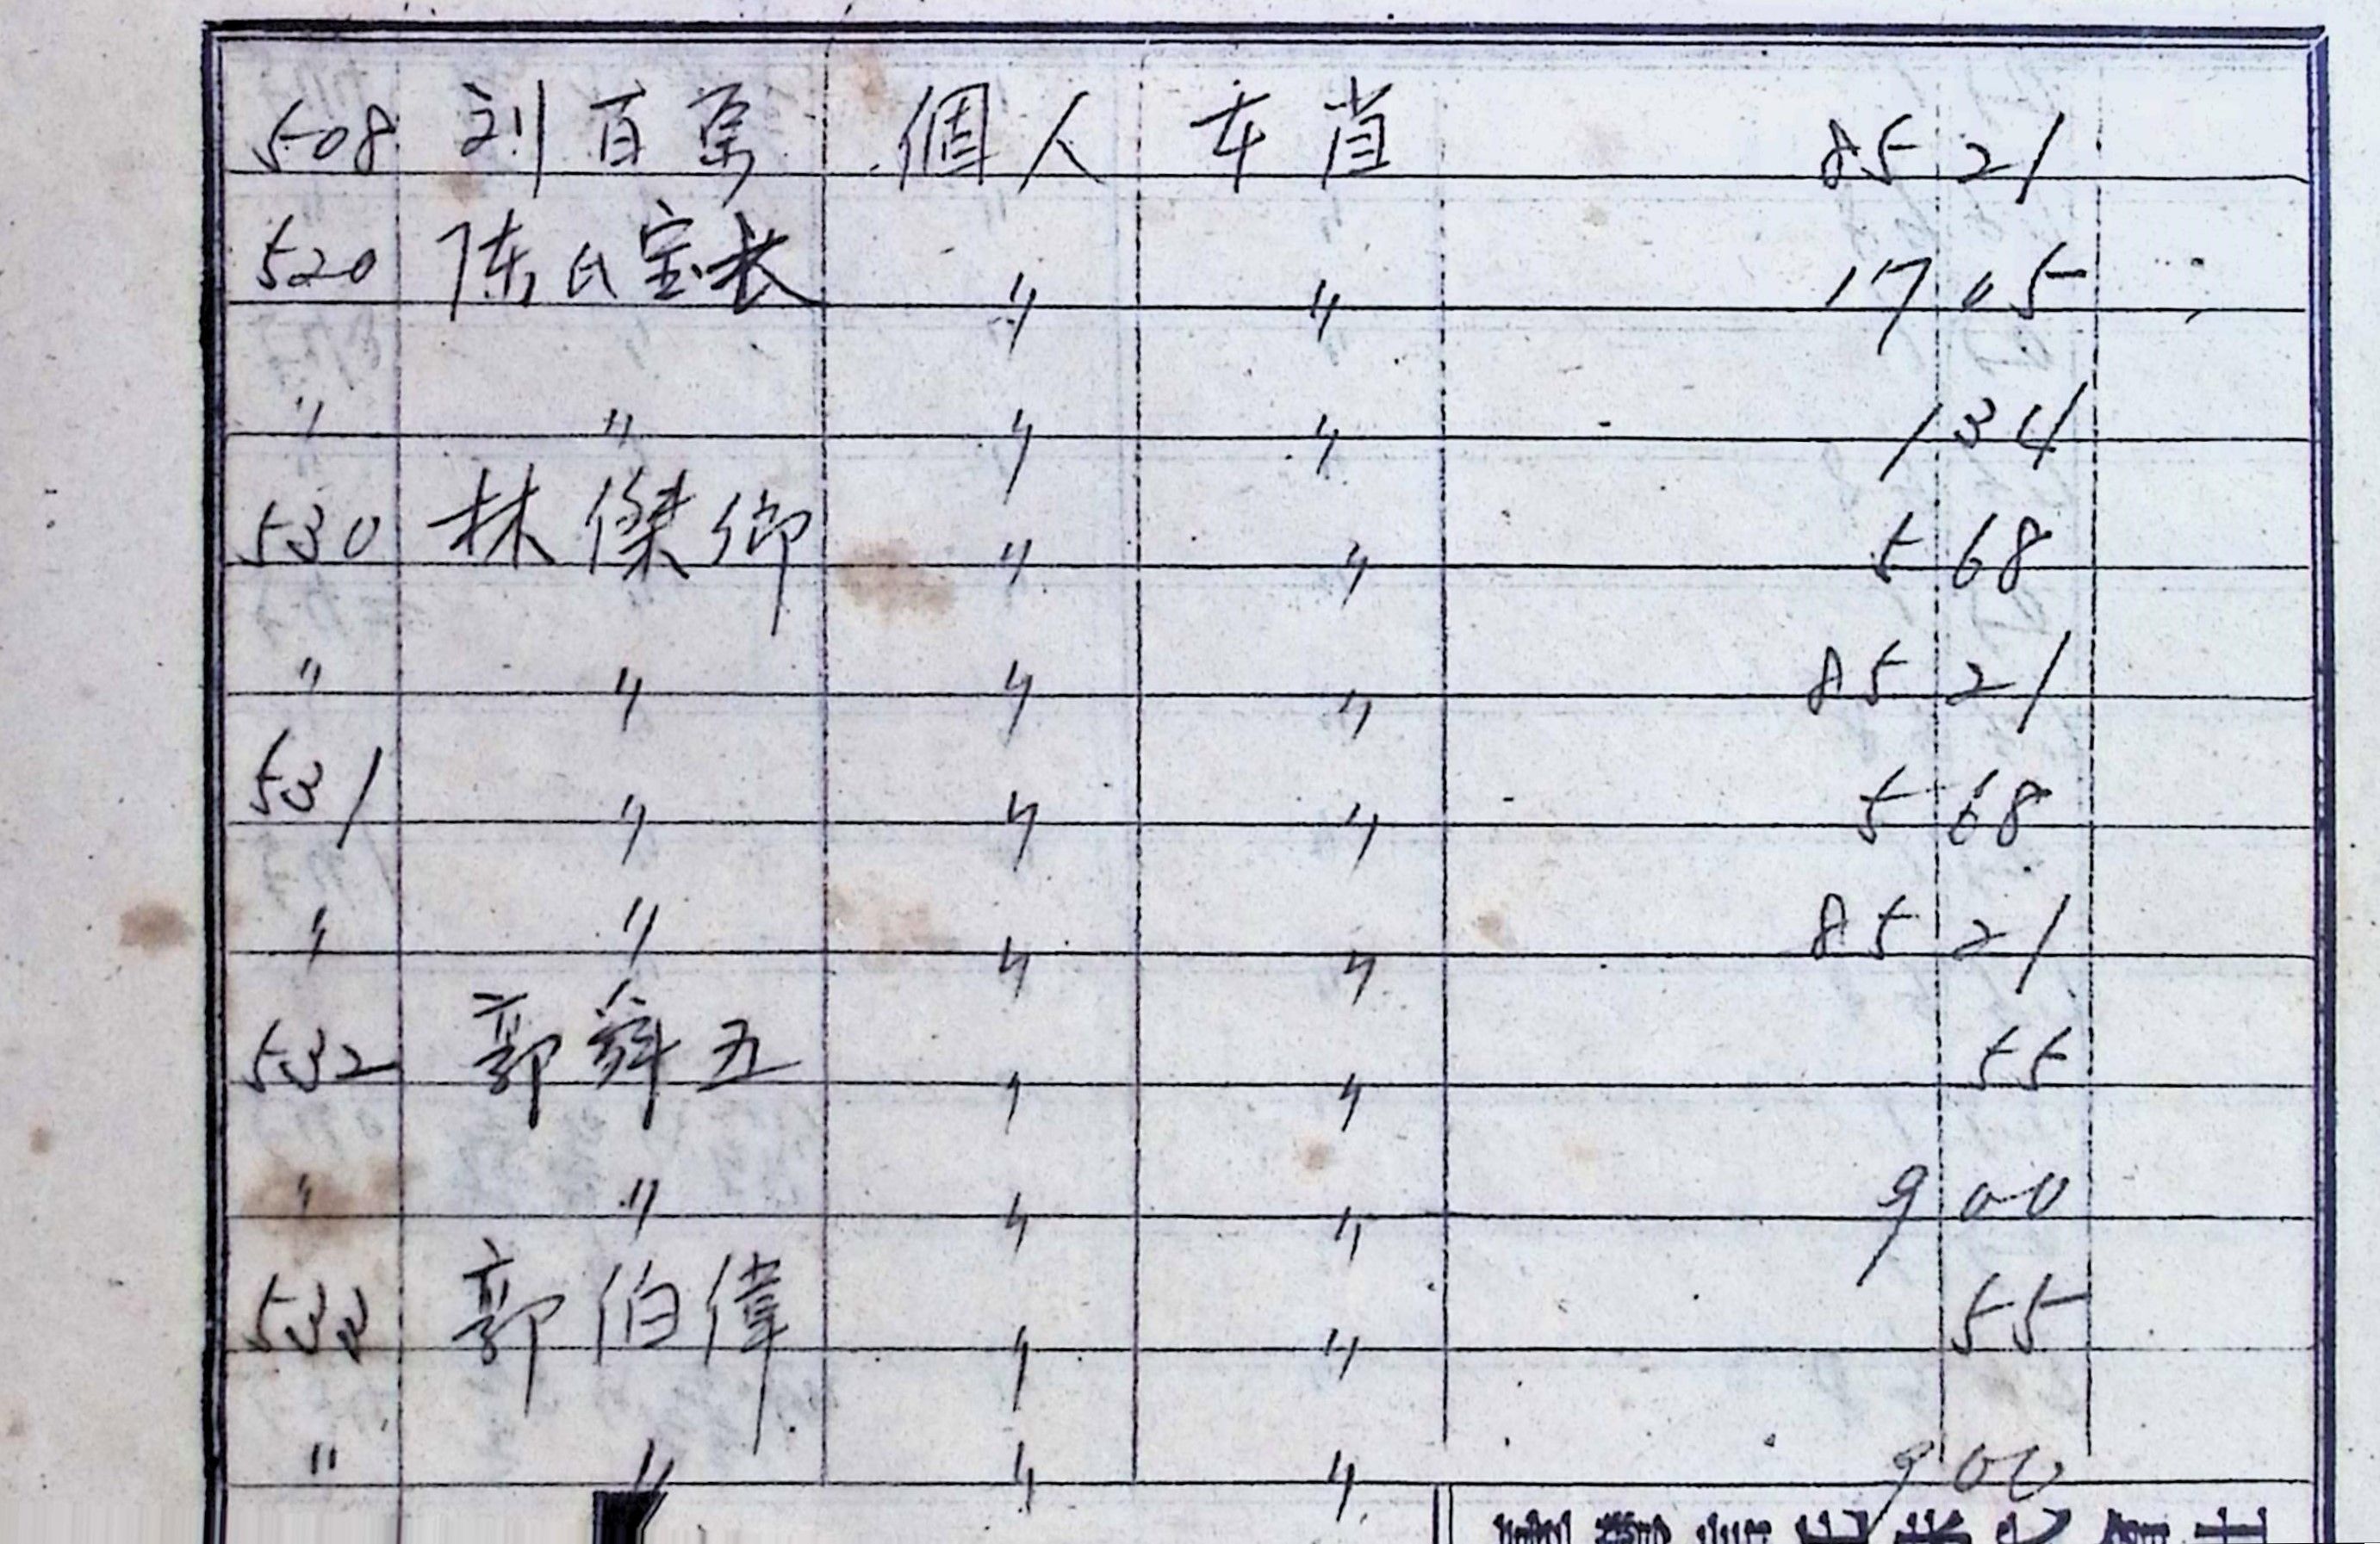 508 刘百 個人 本省 8521
520 陈氏宝长 〃 〃 1705
〃 〃 〃 〃 134
530 林傑卿 〃 〃 568
〃 〃 〃 〃 8521
531 〃 〃 〃 568
〃 〃 〃 〃 8521
532 郭舜五 〃 〃 55
〃 〃 〃 〃 900
533 郭伯偉 〃 〃 55
〃 〃 〃 〃 900